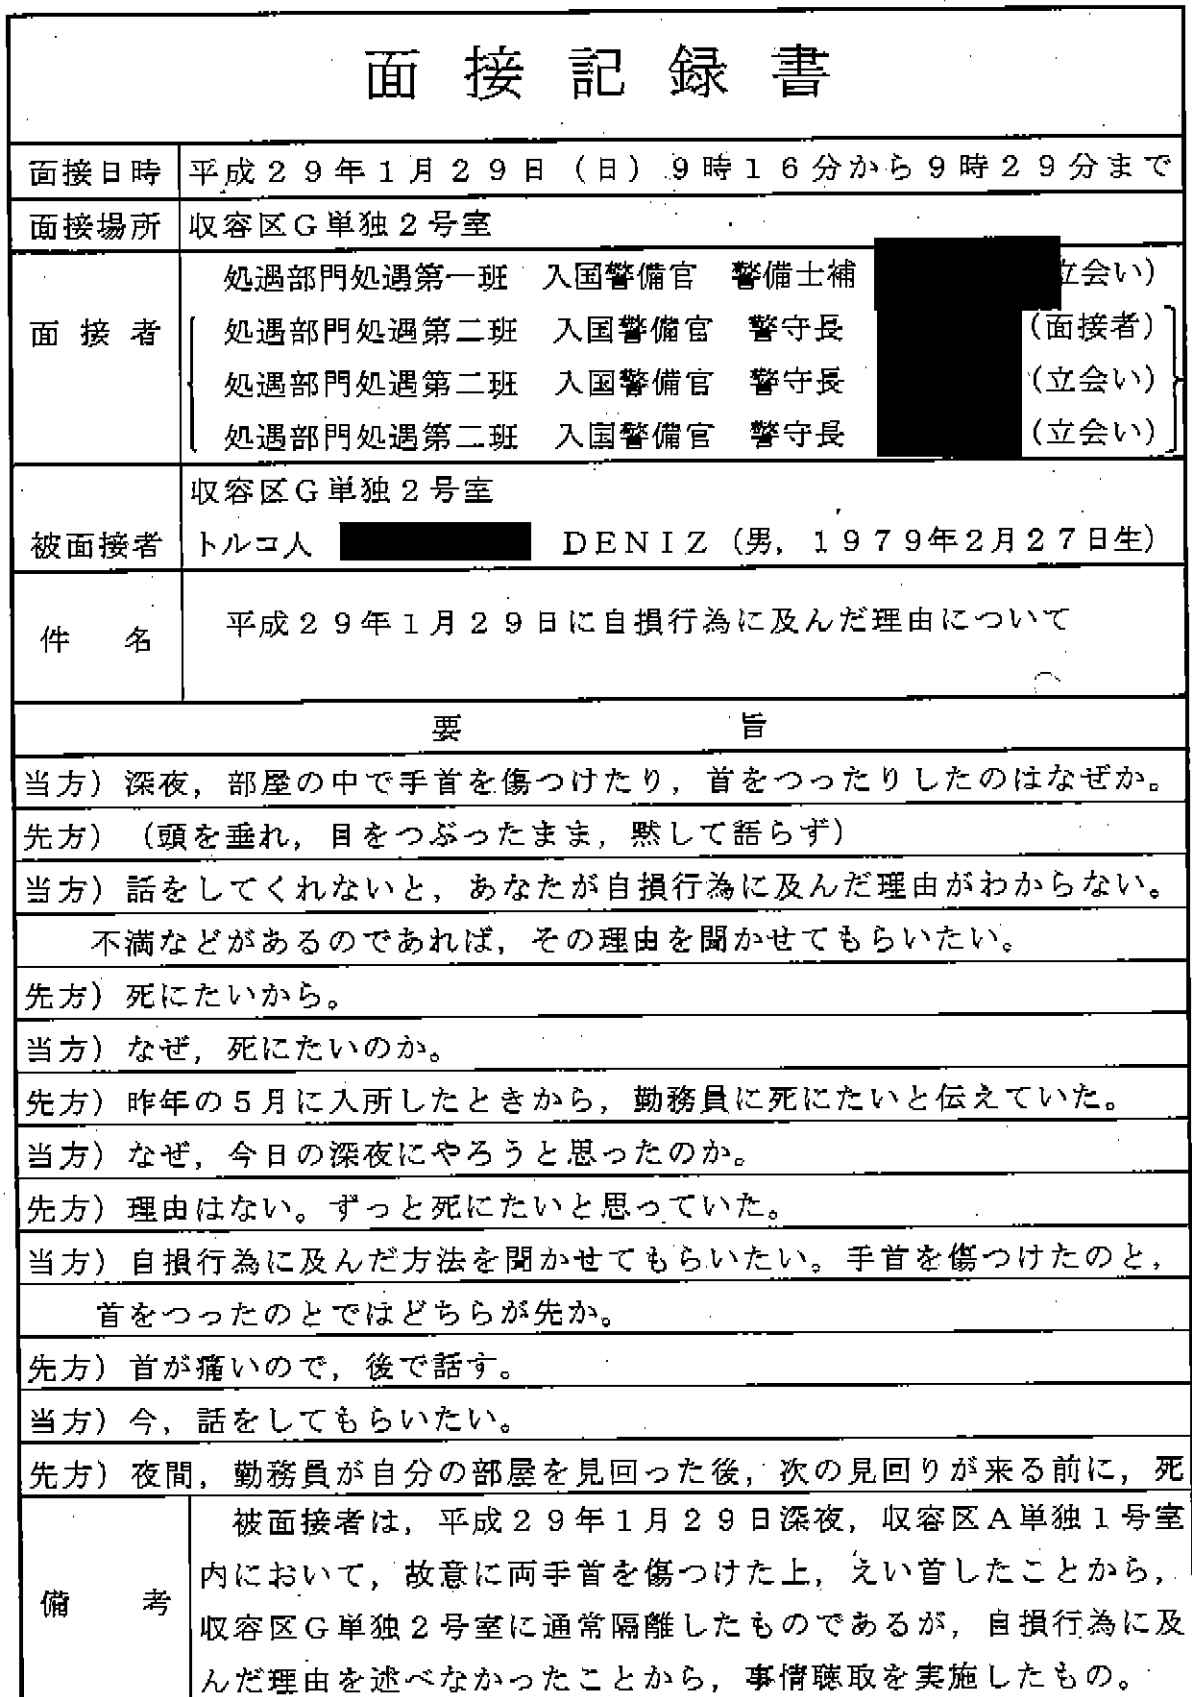 面接記録書
面接日時 平成29年1月29日(日)9時16分から9時29分まで
面接場所 収容区G単独2号室
処遇部門処遇第一班 入国警備官 警備士補 立会い)
面接者 処遇部門処遇第二班 入国警備官 警守長 (面接者)
処遇部門処遇第二班 入国警備官 警守長 (立会い)
処遇部門処遇第二班 入国警備官 警守長 (立会い)
収容区G単独2号室
被面接者 トルコ人 DENIZ(男,1979年2月27日生)
件名 平成29年1月29日に自損行為に及んだ理由について
要旨
当方)深夜,部屋の中で手首を傷つけたり,首をつったりしたのはなぜか。
先方)(頭を垂れ,目をつぶったまま,黙して語らず)
当方)話をしてくれないと,あなたが自損行為に及んだ理由がわからない。
不満などがあるのであれば,その理由を聞かせてもらいたい。
先方)死にたいから。
当方)なぜ,死にたいのか。
先方)昨年の5月に入所したときから,勤務員に死にたいと伝えていた。
当方)なぜ,今日の深夜にやろうと思ったのか。
先方)理由はない。ずっと死にたいと思っていた。
当方)自損行為に及んだ方法を聞かせてもらいたい。手首を傷つけたのと,
首をつったのとではどちらが先か。
先方)首が痛いので,後で話す。
当方)今,話をしてもらいたい。
先方)夜間,勤務員が自分の部屋を見回った後,次の見回りが来る前に,死
被面接者は,平成29年1月29日深夜,収容区A単独1号室
内において,故意に両手首を傷つけた上,えい首したことから,
備考 収容区G単独2号室に通常隔離したものであるが,自損行為に及
んだ理由を述べなかったことから,事情聴取を実施したもの。